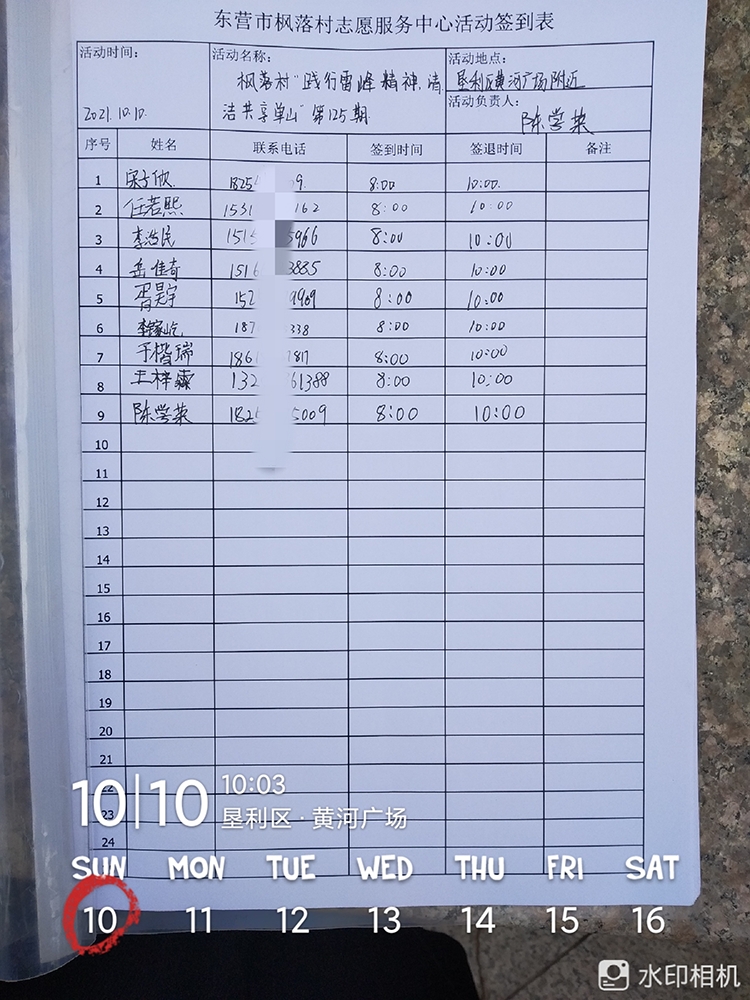 东营市枫落村志愿服务中心活动签到表
活动时间:
2021.10.10.
活动名称:
枫落村"践行雷锋精神.清
洁共享单山"第125期.
活动地点:
垦利区黄河广场附近
活动负责人:
陈学英
序号 姓名 联系电话 签到时间 签退时间 备注
1 宋子欣. 1825 9. 8:00 10:00.
2 任若熙 1531 162 8:00 10:00
3 李浩民 151 5966 8:00 10:00
4 岳佳奇 1516 3885 8:00 10:00
5 胥昊宇 152 9969 8:00 10:00
6 187 338 8:00 10:00
7 于楷瑞 1861 1817 8:00 10:00
8 王梓 132 61388 8:00 10:00
9 陈学英 182 5009 8:00 10:00
10
11
12
13
14
15
16
17
18
19
20
21
22
23
24
10|10 10:03
垦利区·黄河广场
SUN MON TUE WED THU FRI SAT
10 11 12 13 14 15 16
水印相机